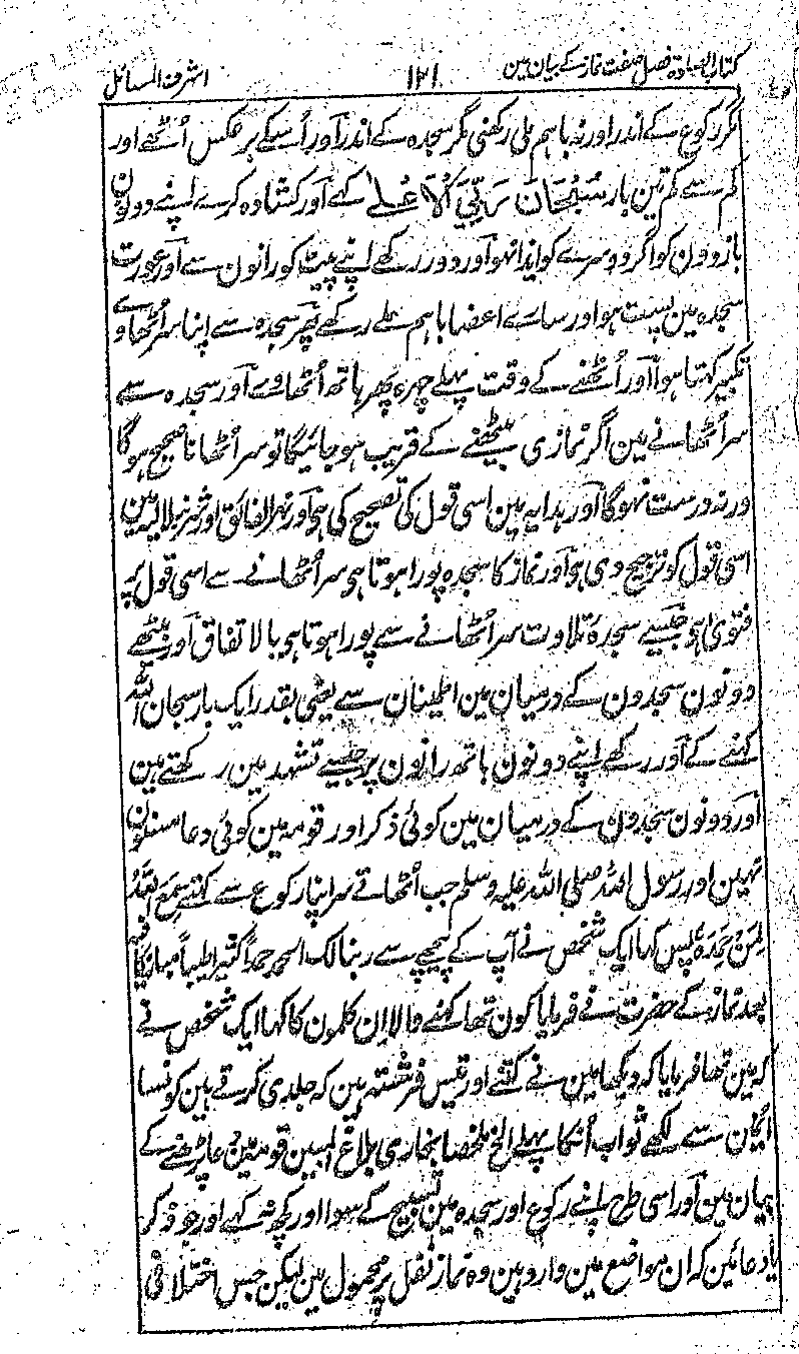 کتاب الصلوة فصل صفت نماز کے بیان مین ۱۲۱ اشرف المسائل
مگر رکوع کے اندر اور نہ باہم ملی رکھنی مگر سجدہ کے اندر اور اُسکے برعکس اُٹھے اور
کم سے کم تین بار سُبْحَانَ رَبِّيَ الْاَعْلٰے کہے اور کشادہ کرے اپنے دونون
بازوون کو اگر دوسرے کو ایذا نہو اور دور رکھے اپنے پیٹ کو رانون سے اور عورت
سجدہ مین پست ہو اور سارے اعضا باہم ملے رکھے پھر سجدہ سے اپنا سر اُٹھاوے
تکبیر کہتا ہوا اور اُٹھنے کے وقت پہلے چہرہ پھر ہاتھ اُٹھاوے اور سجدہ سے
سر اُٹھانے مین اگر نمازی بیٹھنے کے قریب ہو جائیگا تو سر اُٹھانا صحیح ہوگا
ورنہ درست نہوگا اور ہدایہ مین اسی قول کی تصحیح کی ہو اور نہر الفائق اور شرنبلالیہ مین
اسی قول کو ترجیح دی ہو اور نماز کا سجدہ پورا ہوتا ہو سر اُٹھانے سے اسی قول پر
فتوی ہو جیسے سجدۂ تلاوت سر اُٹھانے سے پورا ہوتا ہو بالاتفاق اور بیٹھے
دونون سجدون کے درمیان مین اطمینان سے یعنی بقدر ایک بار سبحان اللہ
کہنے کے اور رکھے اپنے دونون ہاتھ رانون پر جیسے تشہد مین رکھتے ہین
اور دونون سجدون کے درمیان مین کوئی ذکر اور قومہ مین کوئی دعا مسنون
نہین اور رسول اللہ صلی اللہ علیہ وسلم جب اُٹھاتے سر اپنا رکوع سے کہتے سَمِعَ اللّٰہُ
لِمَنْ حَمِدَہٗ پس کہا ایک شخص نے آپ کے پیچھے سے ربنا لک الحمد حمداً کثیراً طیباً مبارکاً فیہ
بعد نماز کے حضرت نے فرمایا کون تھا کہنے والا ان کلمون کا کہا ایک شخص نے
کہ مین تھا فرمایا کہ دیکھا مین نے کتنے اور تیس فرشتہ ہین کہ جلدی کرتے ہین کونسا
اُن سے لکھے ثواب اُنکا پہلے الخ ملخصا بخاری بلاغ المبین قومہ مین دعا پڑھنے کے
بیان مین اور اسی طرح اپنے رکوع اور سجدہ مین تسبیح کے سوا اور کچھ نہ کہے اور جو ذکر
یا دعائین کہ ان مواضع مین وارد ہین وہ نماز نفل پر محمول ہین لیکن جس اختلافی